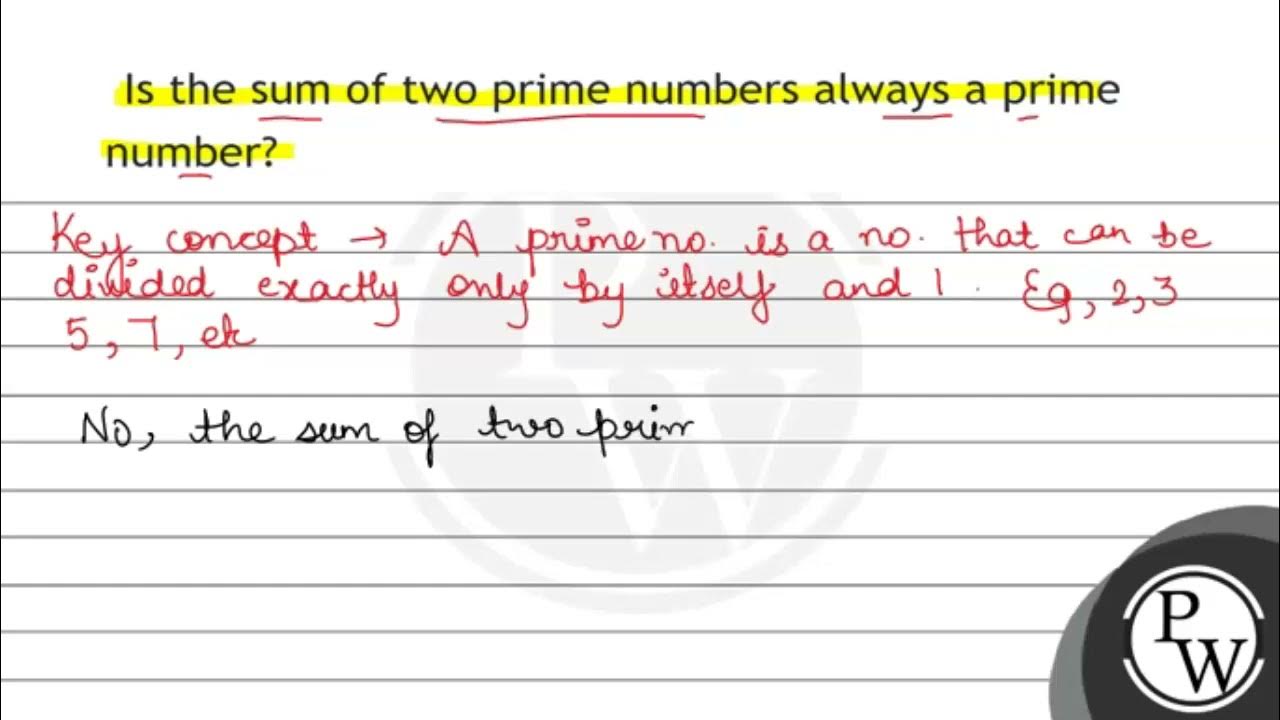 Is the sum of two prime numbers always a prime
number?
Key concept → A prime no. is a no. that can be
divided exactly only by itself and 1. Eg, 2, 3
5, 7, etc
No, the sum of two prim
PW
PW